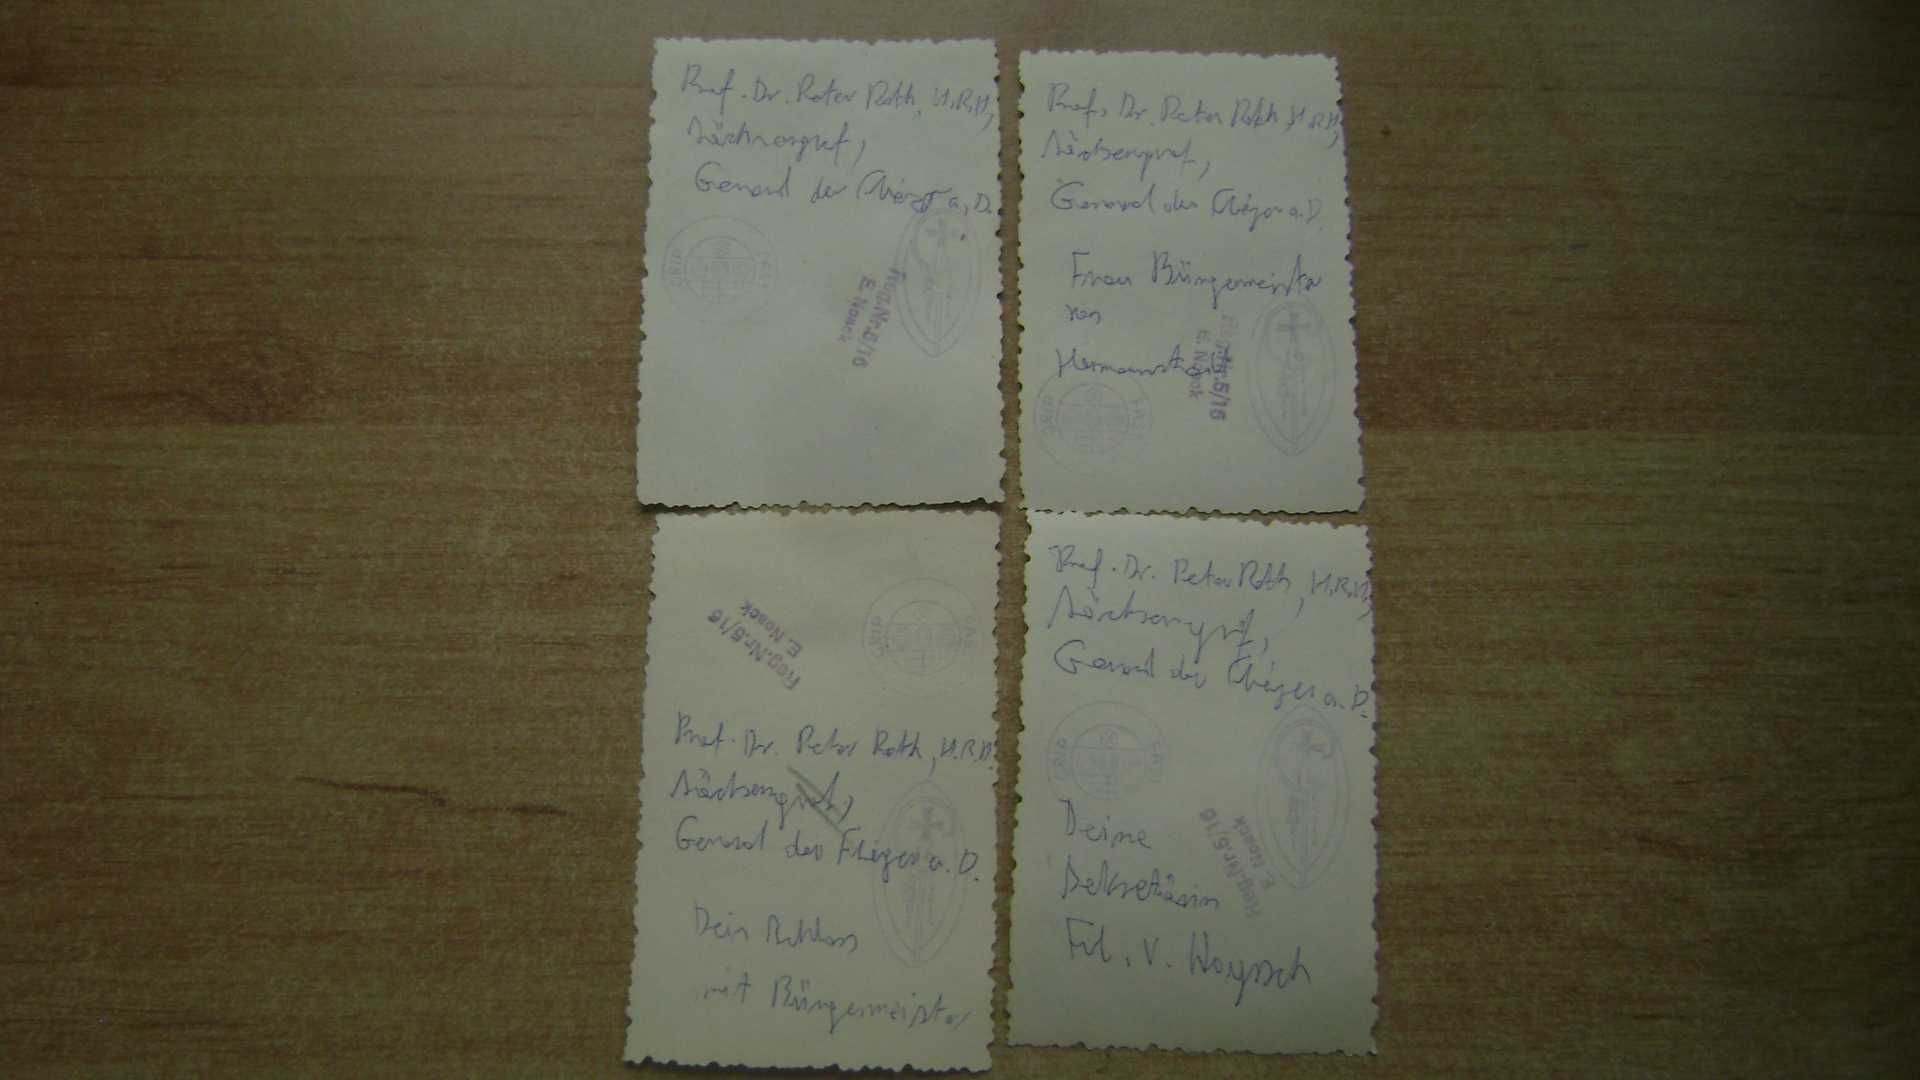 Prof. Dr. Peter Roth, H.R.H,
Sachsengraf,
General der Flieger a. D.
Reg.Nr.5/16
E. Noack
Prof. Dr. Peter Roth, H.R.H,
Sächsengraf,
General der Flieger a. D.
Frau Bürgermeister
von
Hermannstadt
Reg.Nr.5/16
E. Noack
Reg.Nr.5/16
E. Noack
Prof. Dr. Peter Roth, H.R.H.
Sächsengraf,
General der Flieger a. D.
Dein Schloss
mit Bürgermeister
Prof. Dr. Peter Roth, H.R.H,
Sächsengraf,
General der Flieger a. D.
Reg.Nr.5/16
E. Noack
Deine
Sekretärin
Frl. v. Woyrsch